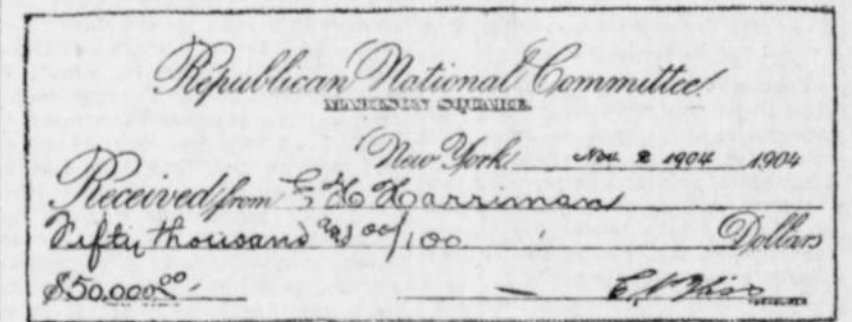 Republican National Committee
MADISON SQUARE
New York Nov 2 1904 1904
Received from E H Harriman
Fifty thousand and 00/100 Dollars
$50,000.00 C N Bliss
TREASURER